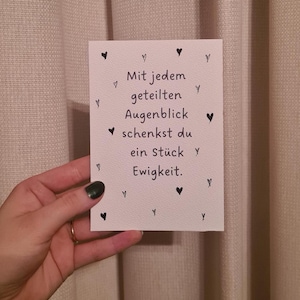 Mit jedem
geteilten
Augenblick
schenkst du
ein Stück
Ewigkeit.